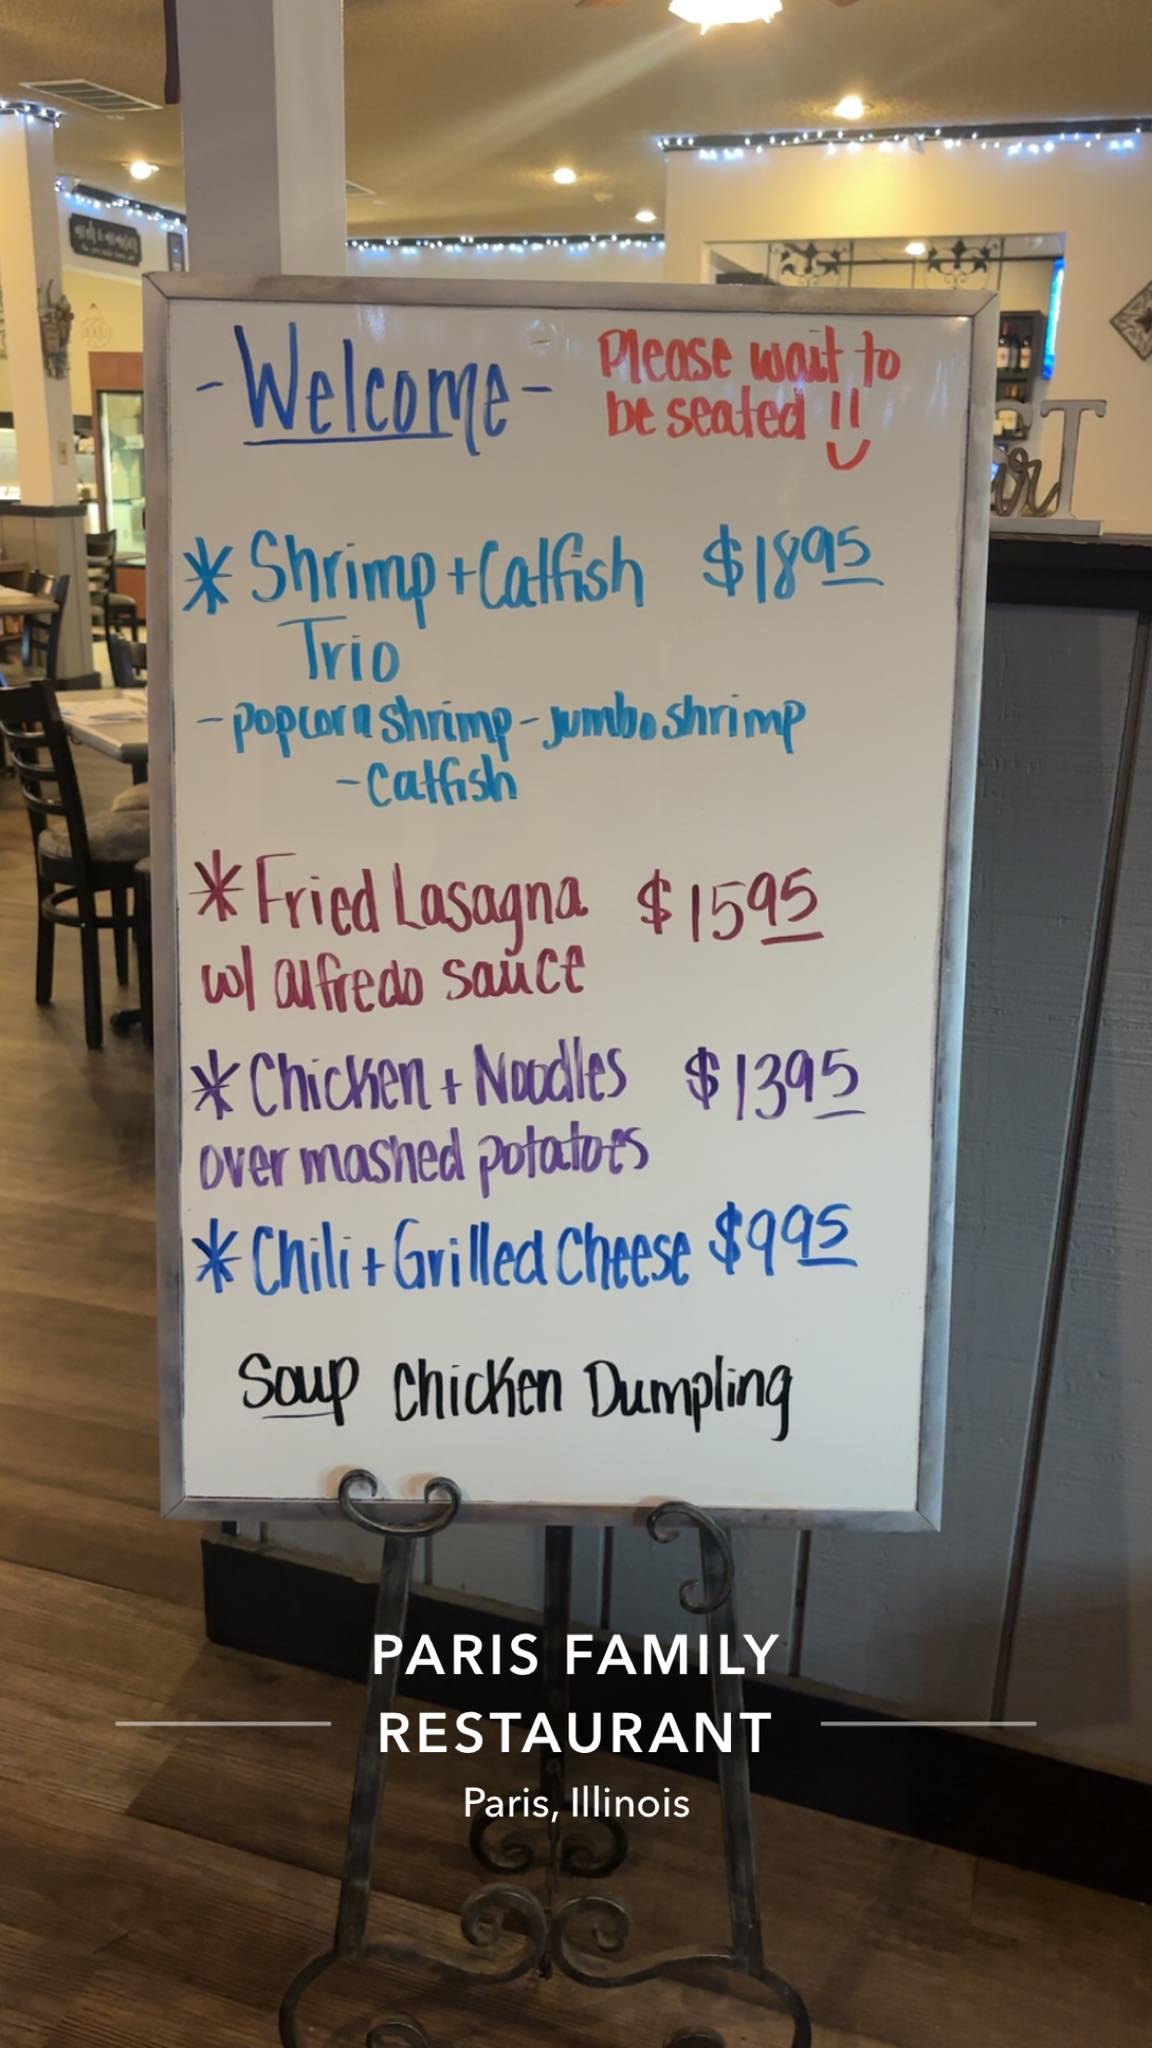 -Welcome-
Please wait to
be seated !!
* Shrimp + Catfish $18 95
Trio
- popcorn shrimp - jumbo shrimp
- Catfish
* Fried Lasagna $15 95
w/ alfredo sauce
* Chicken + Noodles $13 95
over mashed potatoes
* Chili + Grilled Cheese $9 95
Soup Chicken Dumpling
PARIS FAMILY
RESTAURANT
Paris, Illinois